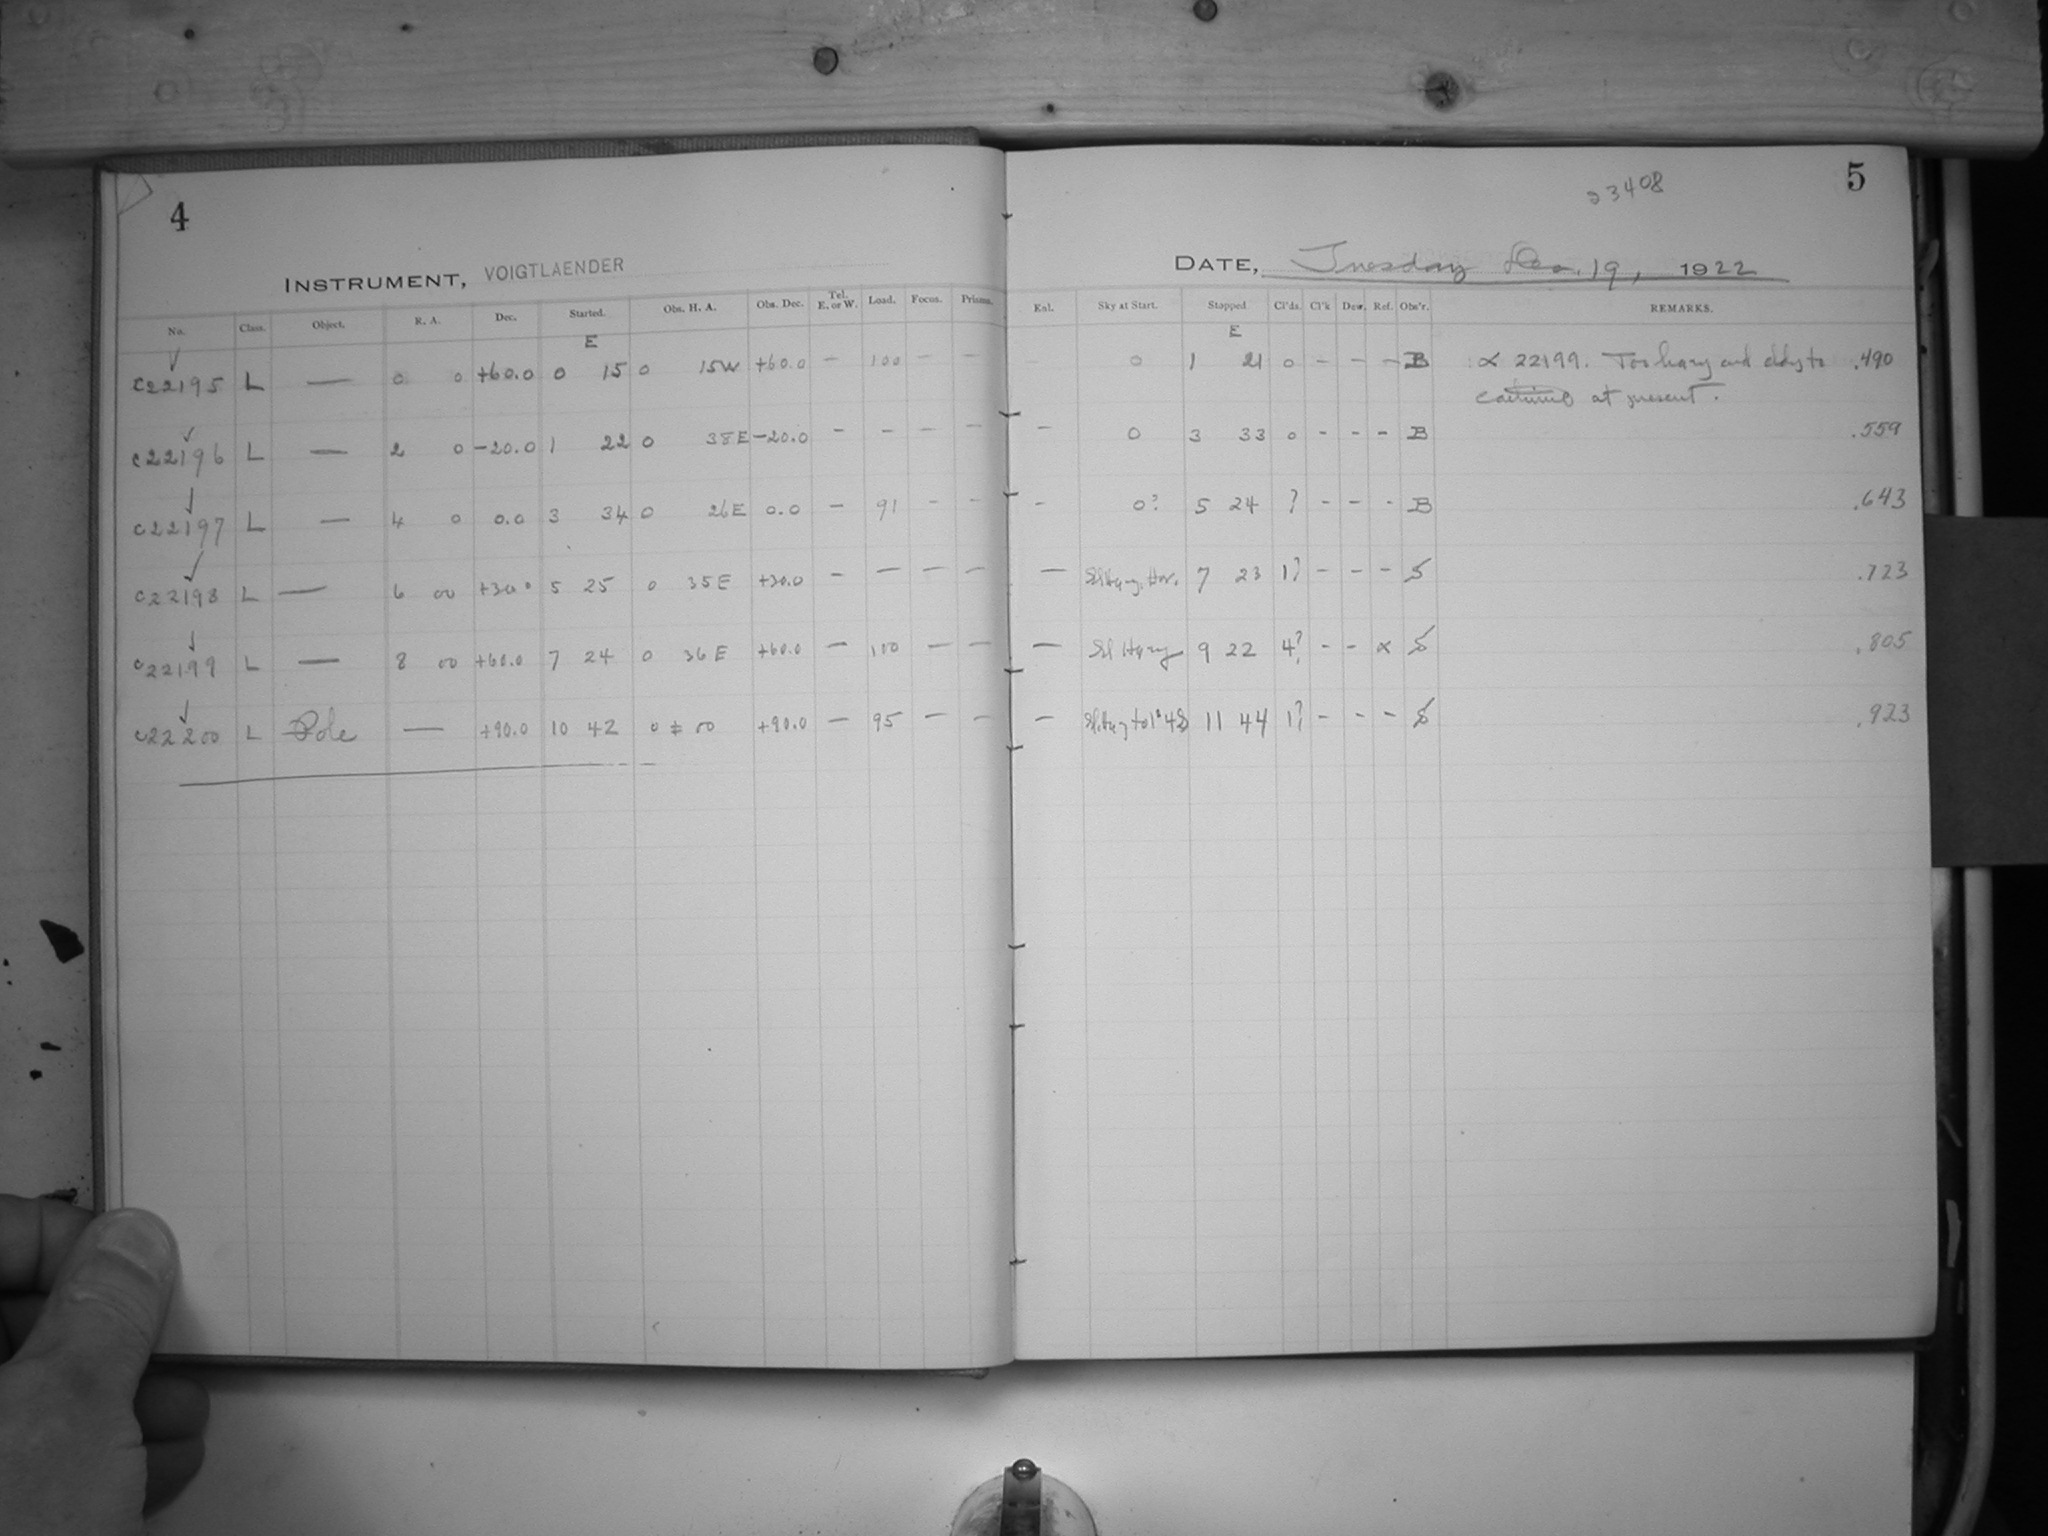 4
INSTRUMENT, VOIGTLAENDER
No. Class. Object. R. A. Dec. Started. Obs. H. A. Obs. Dec. Tel. E. or W. Load. Focus. Prisms.
E
c22195 L — 0 0 +60.0 0 15 0 15W +60.0 – 100 – –
c22196 L — 2 0 –20.0 1 22 0 38E –20.0 – – – –
c22197 L — 4 0 0.0 3 34 0 26E 0.0 – 91 – –
c22198 L — 6 00 +30.0 5 25 0 35E +30.0 – – – –
c22199 L — 8 00 +60.0 7 24 0 36E +60.0 – 100 – –
c22200 L Pole — +90.0 10 42 0 ± 00 +90.0 – 95 – –
23408
5
DATE, Tuesday Dec. 19, 1922
Exl. Sky at Start. Stopped Cl'ds. Cl'k Dew. Ref. Obs'r. REMARKS.
E
0 1 21 0 – – – B α 22199. Too hazy and cldy to .490
continue at present.
– 0 3 33 0 – – – B .559
– 0? 5 24 ? – – – B .643
— Sl Hazy. Hor. 7 23 1? – – – S .723
— Sl Hazy 9 22 4? – – α S .805
— Sl. Hazy 11 44 1? – – – S .923